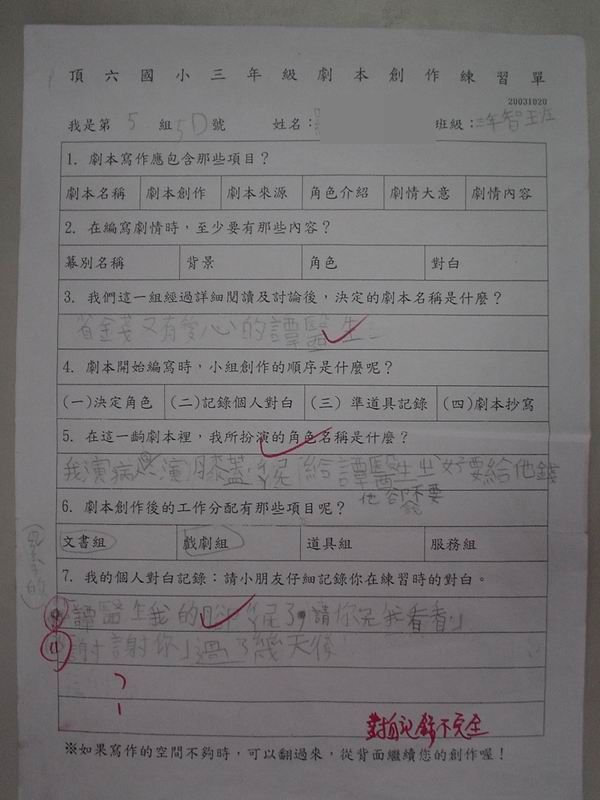 頂六國小三年級劇本創作練習單
20031020
我是第5組5D號 姓名: 班級:三年智班
1. 劇本寫作應包含那些項目?
劇本名稱 劇本創作 劇本來源 角色介紹 劇情大意 劇情內容
2. 在編寫劇情時,至少要有那些內容?
幕別名稱 背景 角色 對白
3. 我們這一組經過詳細閱讀及討論後,決定的劇本名稱是什麼?
省金錢又有愛心的譚醫生
4. 劇本開始編寫時,小組創作的順序是什麼呢?
(一)決定角色 (二)記錄個人對白 (三) 準道具記錄 (四)劇本抄寫
5. 在這一齣劇本裡,我所扮演的角色名稱是什麼?
我演病 演膝蓋 給譚醫生 好要給他錢
他卻不要
6. 劇本創作後的工作分配有那些項目呢?
文書組 戲劇組 道具組 服務組
7. 我的個人對白記錄:請小朋友仔細記錄你在練習時的對白。
譚醫生我的腳 了,請你 我看看」
謝謝你」過了幾天後
對白記錄不完全
※如果寫作的空間不夠時,可以翻過來,從背面繼續您的創作喔!